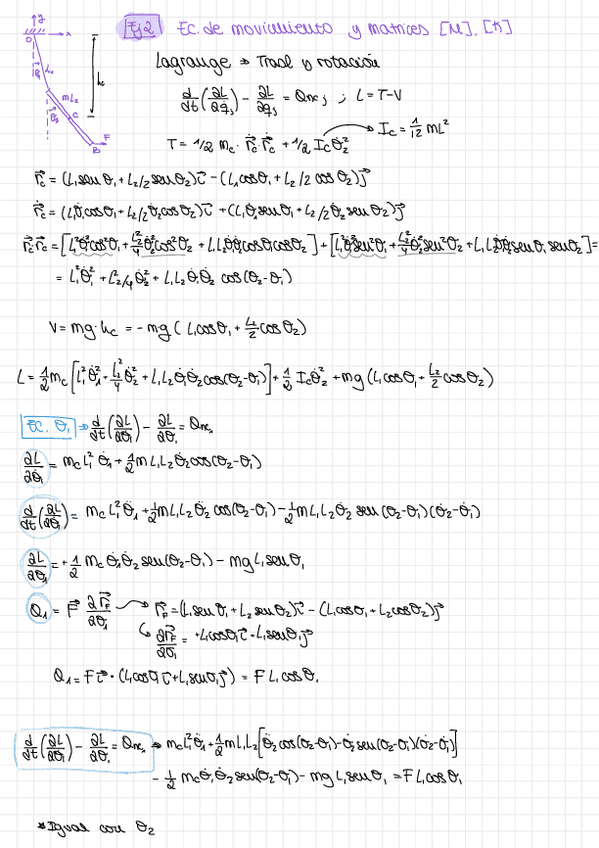 Ej 2 Ec. de movimiento y matrices [M], [K]
y
x
O
θ₁
L₁
hc
mL₂
θ₂
C
B
F
Lagrange ⇒ Trasl y rotación
d/dt(∂L/∂q̇j) - ∂L/∂qj = Qncj ; L = T-V
T = 1/2 mc · ṙc ṙc + 1/2 Ic θ̇₂²
Ic = 1/12 mL²
rc = (L₁senθ₁ + L₂/2 senθ₂)i - (L₁cosθ₁ + L₂/2 cosθ₂)j
ṙc = (L₁θ̇₁cosθ₁ + L₂/2 θ̇₂cosθ₂)i + (L₁θ̇₁senθ₁ + L₂/2 θ̇₂senθ₂)j
ṙc ṙc = [L₁²θ̇₁²cos²θ₁ + L₂²/4 θ̇₂²cos²θ₂ + L₁L₂θ̇₁θ̇₂cosθ₁cosθ₂] + [L₁²θ̇₁²sen²θ₁ + L₂²/4 θ̇₂²sen²θ₂ + L₁L₂θ̇₁θ̇₂senθ₁senθ₂] =
= L₁²θ̇₁² + L₂²/4 θ̇₂² + L₁L₂θ̇₁θ̇₂ cos(θ₂-θ₁)
V = mg·hc = -mg(L₁cosθ₁ + L₂/2 cosθ₂)
L = 1/2 mc[L₁²θ̇₁² + L₂²/4 θ̇₂² + L₁L₂θ̇₁θ̇₂cos(θ₂-θ₁)] + 1/2 Icθ̇₂² + mg(L₁cosθ₁ + L₂/2 cosθ₂)
EC. θ₁ ⇒ d/dt(∂L/∂θ̇₁) - ∂L/∂θ₁ = Qnc₁
∂L/∂θ̇₁ = mcL₁²θ̇₁ + 1/2 mL₁L₂θ̇₂cos(θ₂-θ₁)
d/dt(∂L/∂θ̇₁) = mcL₁²θ̈₁ + 1/2 mL₁L₂θ̈₂cos(θ₂-θ₁) - 1/2 mL₁L₂θ̇₂ sen(θ₂-θ₁)(θ̇₂-θ̇₁)
∂L/∂θ₁ = +1/2 mcθ̇₁θ̇₂sen(θ₂-θ₁) - mgL₁senθ₁
Q₁ = F ∂rF/∂θ₁ → rF = (L₁senθ₁ + L₂senθ₂)i - (L₁cosθ₁ + L₂cosθ₂)j
∂rF/∂θ₁ = +L₁cosθ₁i + L₁senθ₁j
Q₁ = Fi · (L₁cosθ₁i + L₁senθ₁j) = FL₁cosθ₁
d/dt(∂L/∂θ̇₁) - ∂L/∂θ₁ = Qnc₁ ⇒ mcL₁²θ̈₁ + 1/2 mL₁L₂[θ̈₂cos(θ₂-θ₁) - θ̇₂sen(θ₂-θ₁)(θ̇₂-θ̇₁)]
- 1/2 mcθ̇₁θ̇₂sen(θ₂-θ₁) - mgL₁senθ₁ = FL₁cosθ₁
*Igual con θ₂